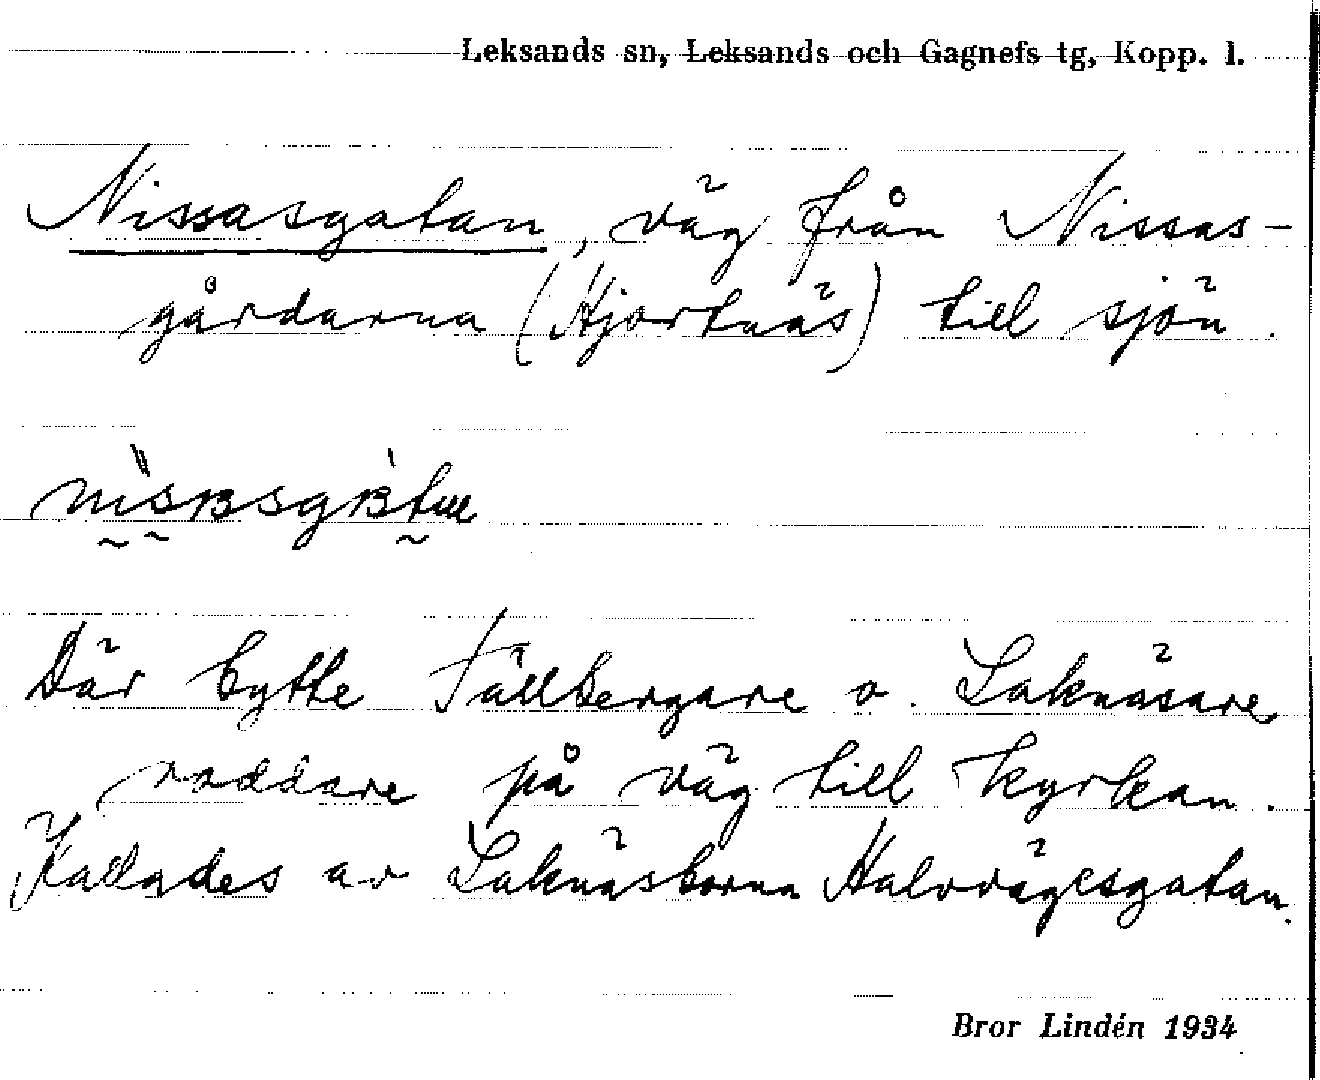 Leksands sn, Leksands och Gagnefs tg, Kopp. l.
Nissasgatan, väg från Nissas-
gårdarna (Hjortnäs) till sjön.
Där bytte Tällbergare o. Laknäsare
roddare på väg till kyrkan.
Kallades av Laknäsborna Halvvägesgatan.
Bror Lindén 1934